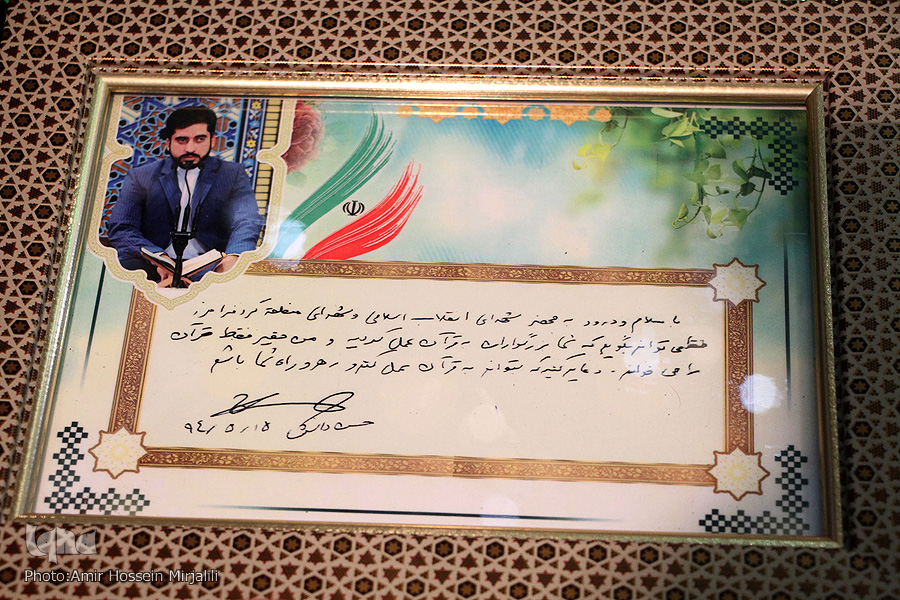 با سلام و درود به محضر شهدای انقلاب اسلامی و شهدای منطقه گردفرامرز
فقط می‌توانم بگویم که شما بزرگواران به قرآن عمل کردید و من حقیر فقط قرآن
را می خوانم. دعا کنید که بتوانم به قرآن عمل کنم و رهرو راه شما باشم
حسن دانش
۹۴/۵/۱۵
iqna
Photo:Amir Hossein Mirjalili